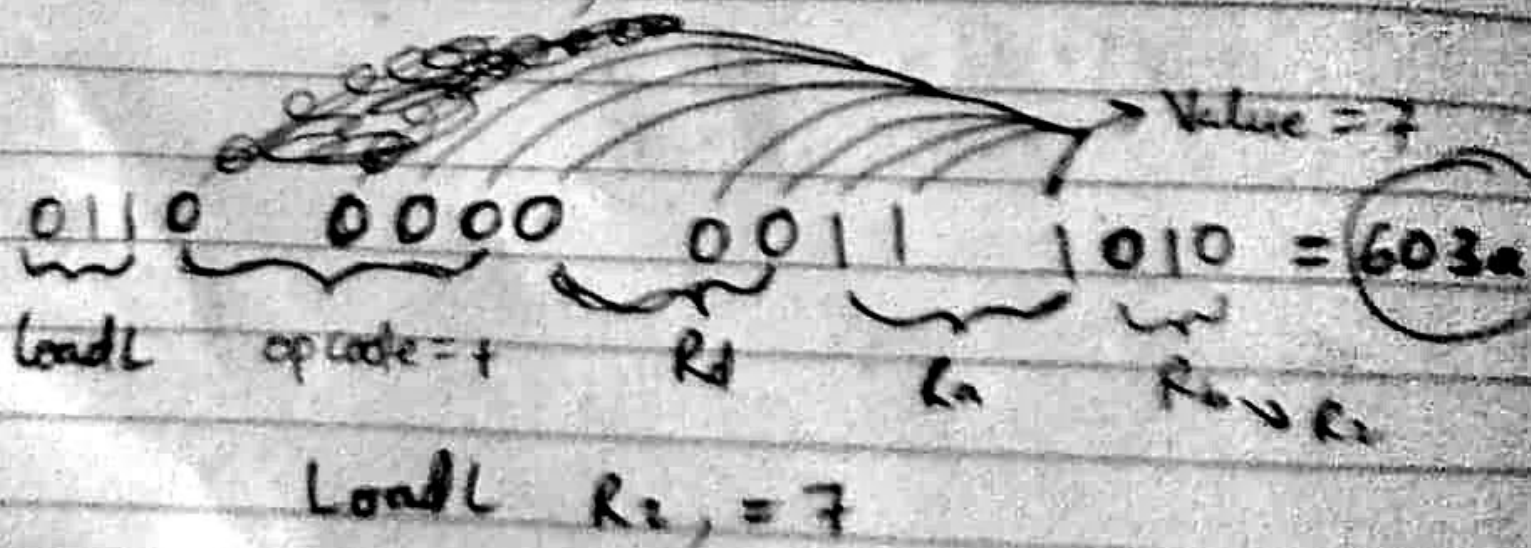 Value = 7
0110 0000 0011 1010 = 603a
LoadL opcode = + Rd Ra Rb → R2
LoadL R2, = 7